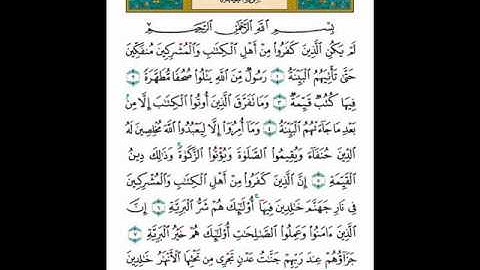 بِسْمِ اللَّهِ الرَّحْمَٰنِ الرَّحِيمِ
لَمْ يَكُنِ الَّذِينَ كَفَرُوا مِنْ أَهْلِ الْكِتَابِ وَالْمُشْرِكِينَ مُنفَكِّينَ
حَتَّىٰ تَأْتِيَهُمُ الْبَيِّنَةُ ١ رَسُولٌ مِّنَ اللَّهِ يَتْلُوا صُحُفًا مُّطَهَّرَةً ٢
فِيهَا كُتُبٌ قَيِّمَةٌ ٣ وَمَا تَفَرَّقَ الَّذِينَ أُوتُوا الْكِتَابَ إِلَّا مِن
بَعْدِ مَا جَاءَتْهُمُ الْبَيِّنَةُ ٤ وَمَا أُمِرُوا إِلَّا لِيَعْبُدُوا اللَّهَ مُخْلِصِينَ لَهُ
الدِّينَ حُنَفَاءَ وَيُقِيمُوا الصَّلَوٰةَ وَيُؤْتُوا الزَّكَوٰةَ وَذَٰلِكَ دِينُ
الْقَيِّمَةِ ٥ إِنَّ الَّذِينَ كَفَرُوا مِنْ أَهْلِ الْكِتَابِ وَالْمُشْرِكِينَ
فِي نَارِ جَهَنَّمَ خَالِدِينَ فِيهَا أُولَٰئِكَ هُمْ شَرُّ الْبَرِيَّةِ ٦ إِنَّ
الَّذِينَ ءَامَنُوا وَعَمِلُوا الصَّالِحَاتِ أُولَٰئِكَ هُمْ خَيْرُ الْبَرِيَّةِ ٧
جَزَاؤُهُمْ عِندَ رَبِّهِمْ جَنَّاتُ عَدْنٍ تَجْرِي مِن تَحْتِهَا الْأَنْهَارُ خَالِدِينَ